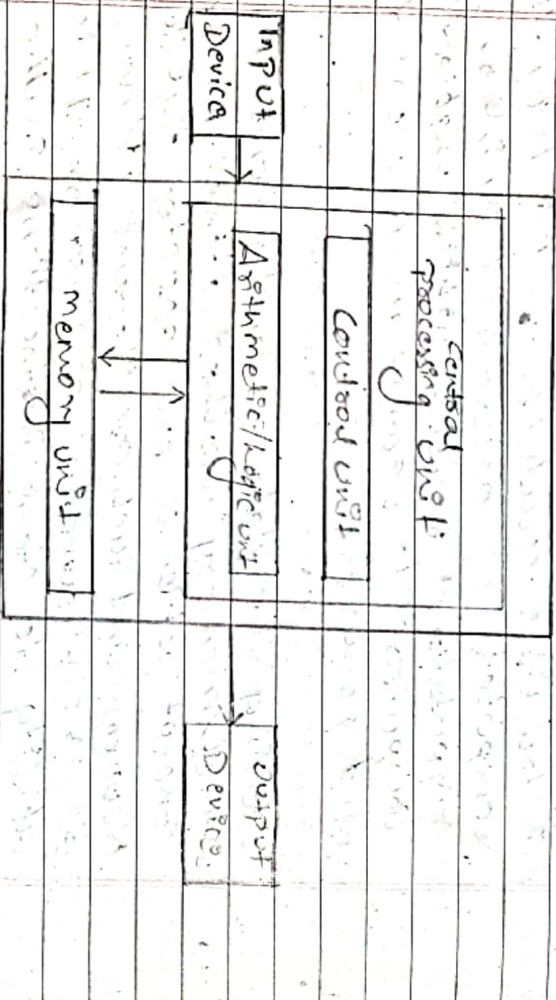 Input
Device
Central
Processing unit
Control unit
Arithmetic/Logic unit
Memory unit
Output
Device